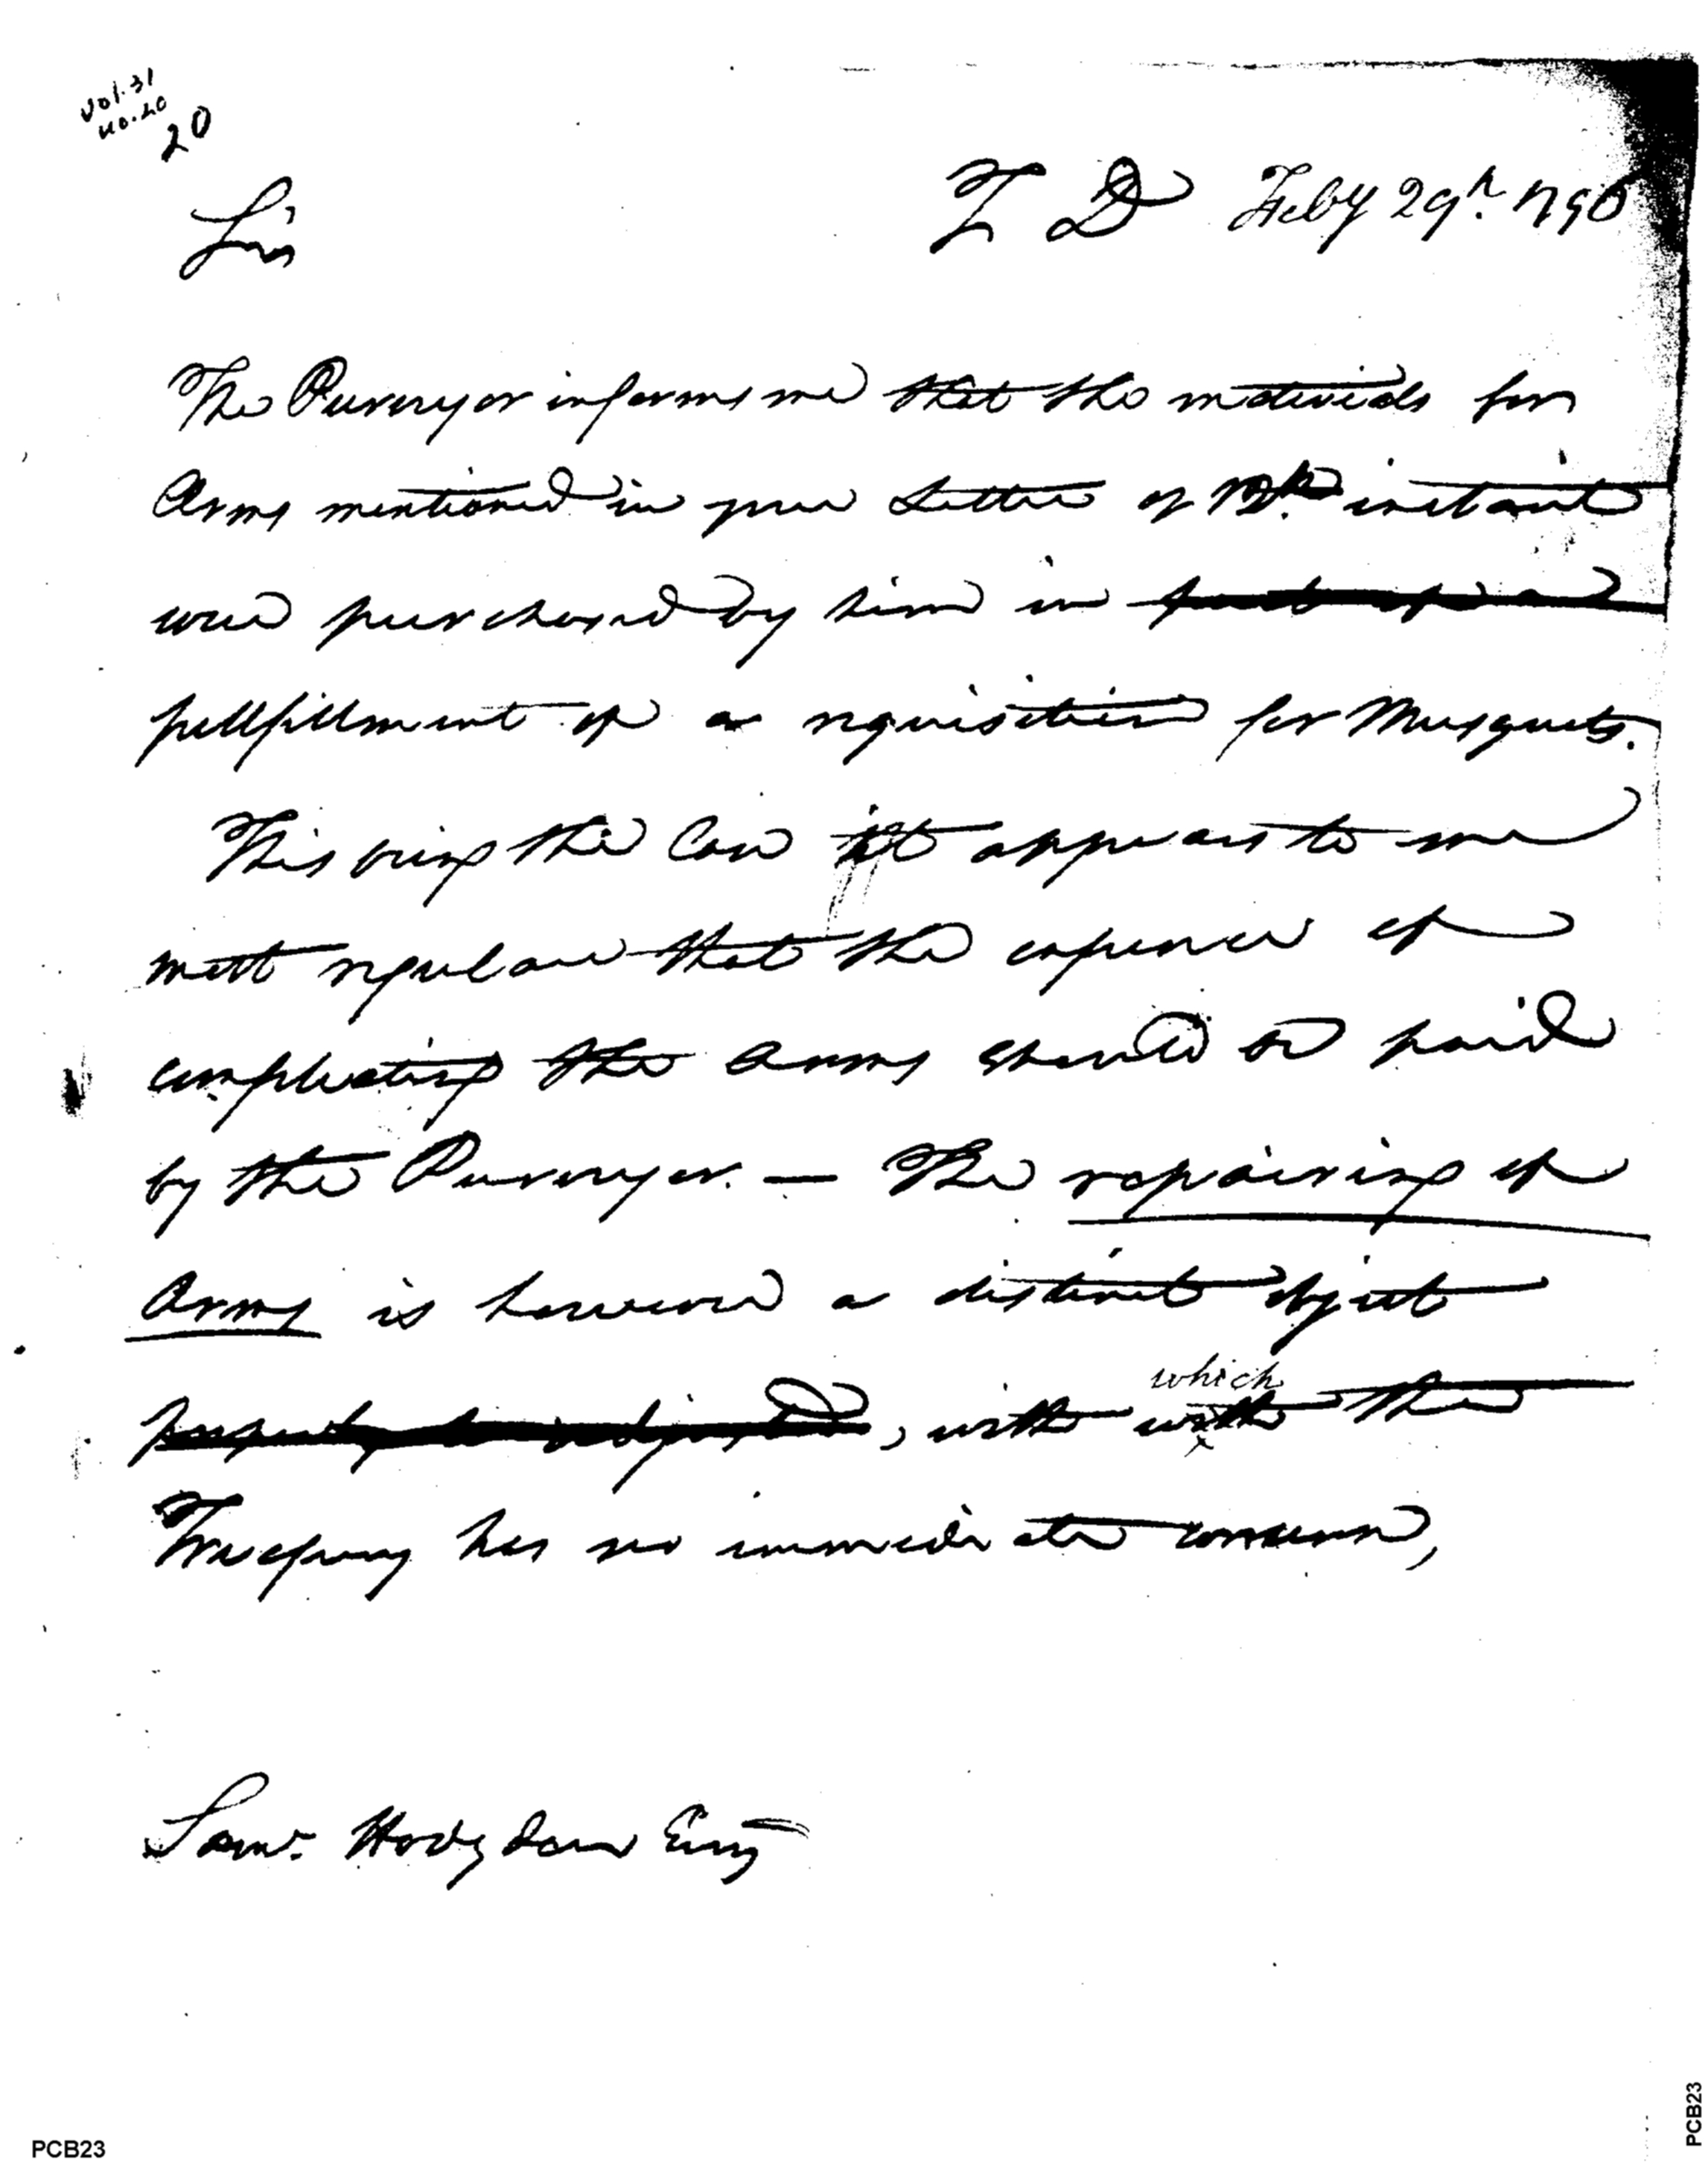 Vol. 31
No. 20
20
T D Feby 29th. 1796
Sir
The Purveyor informs me that the materials for
Arms mentioned in your Letter of 13th. instant
were purchased by him in
fullfillment of a requisition for Musquets.
This being the Case it appears to me
most regular that the expence of
compleating the arms should be paid
by the Purveyor. — The repairing of
Arms is however a distinct object
which
, with with the
Treasury has no immediate concern,
Saml. Hodgdon Esq
PCB23
PCB23